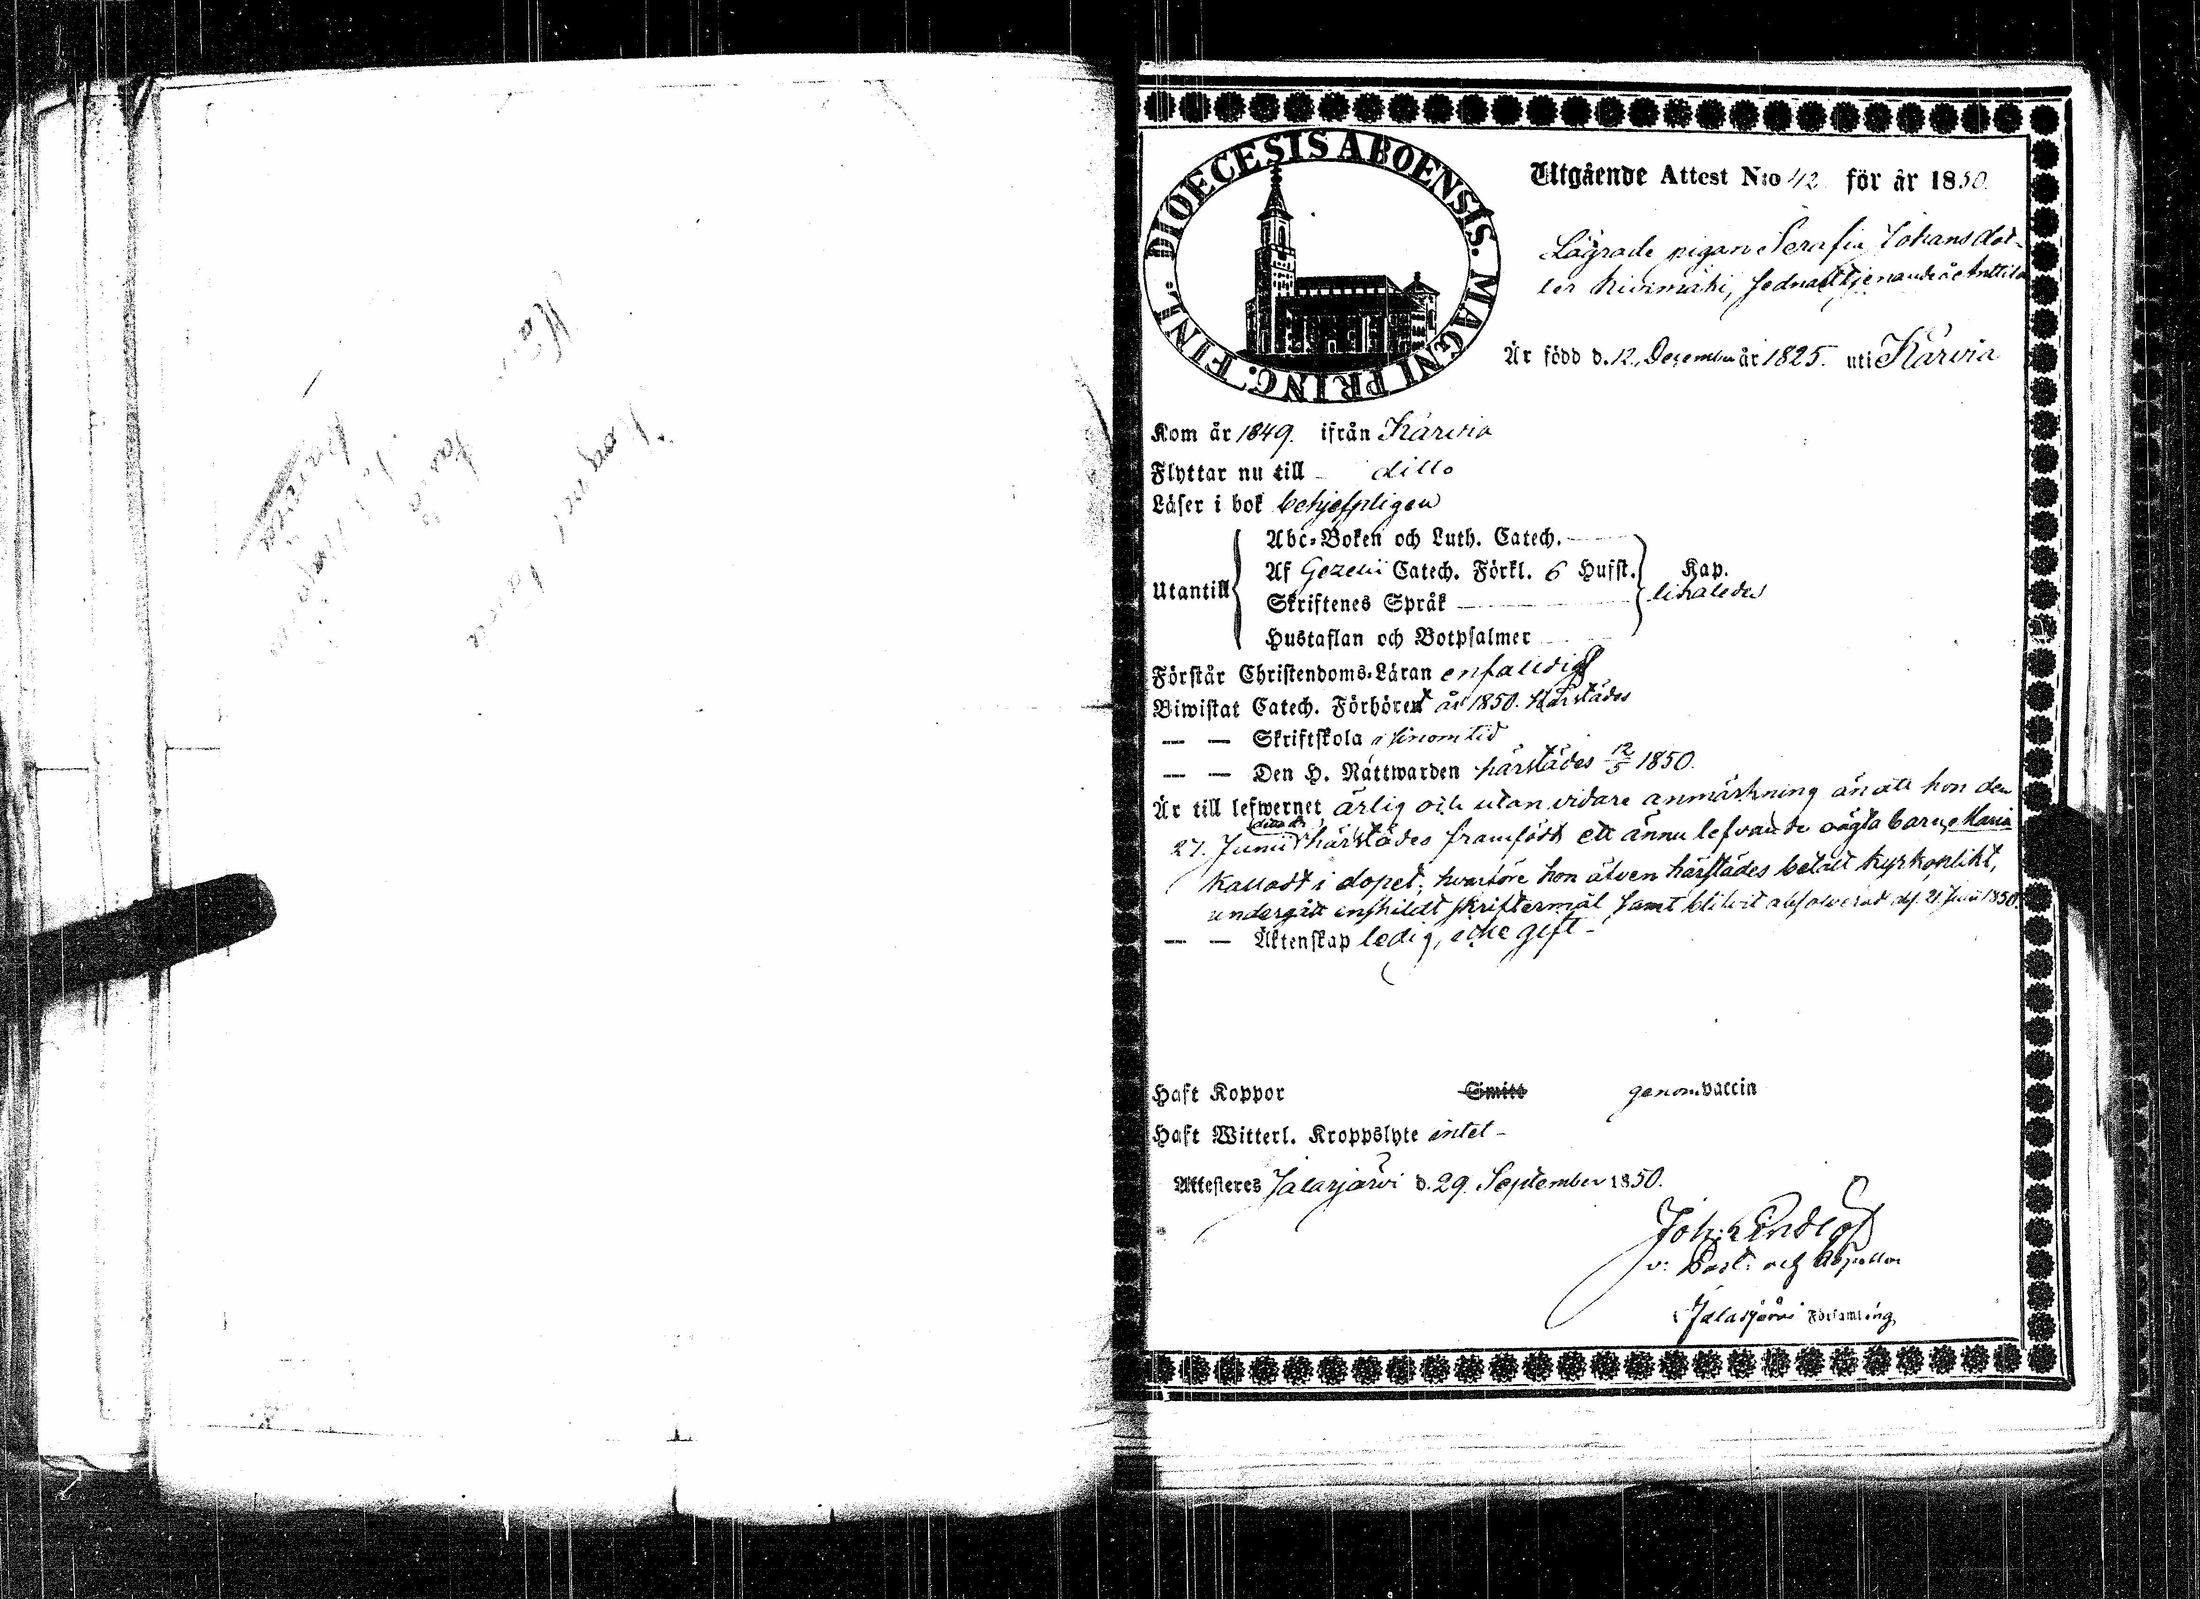 DIOECESIS ABOENSIS. MAGNI PRINC. FINL.
Utgående Attest N:o 42 för år 1850.
Lägrade pigan Serafia Johansdot-
ter Kivimäki, sednast tjenande å Anttila
Är född d. 12. December år 1825. uti Karvia
Kom år 1849. ifrån Karvia
Flyttar nu till ditto
Läser i bok behjefpligen
Utantill
Abc-Boken och Luth. Catech.
Af Gezelii Catech. Förkl. 6 Hufst. Kap.
Skriftenes Språk likaledes
Hustaflan och Botpsalmer
Förstår Christendoms-Läran enfaldigt
Biwistat Catech. Förhöret år 1850. härstädes
— — Skriftskola i sinom tid
— — Den H. Nattwarden härstädes 12/5 1850.
Är till lefwernet ärlig och utan vidare anmärkning än att hon den
27. Junii härstädes framfödt ett ännu lefvande oägta barn, Maria
kalladt i dopet; hvarföre hon äfven härstädes betalt kyrkoplikt,
undergått enskildt skriftermål samt blifvit absolverad d. 21 1850.
— — Äktenskap ledig, icke gift -
Haft Koppor Smitt genom vaccin
Haft Witterl. Kroppslyte intet -
Attesteres Jalasjärvi d. 29. September 1850.
Joh:
v: Past: och
i Jalasjärvi Församling